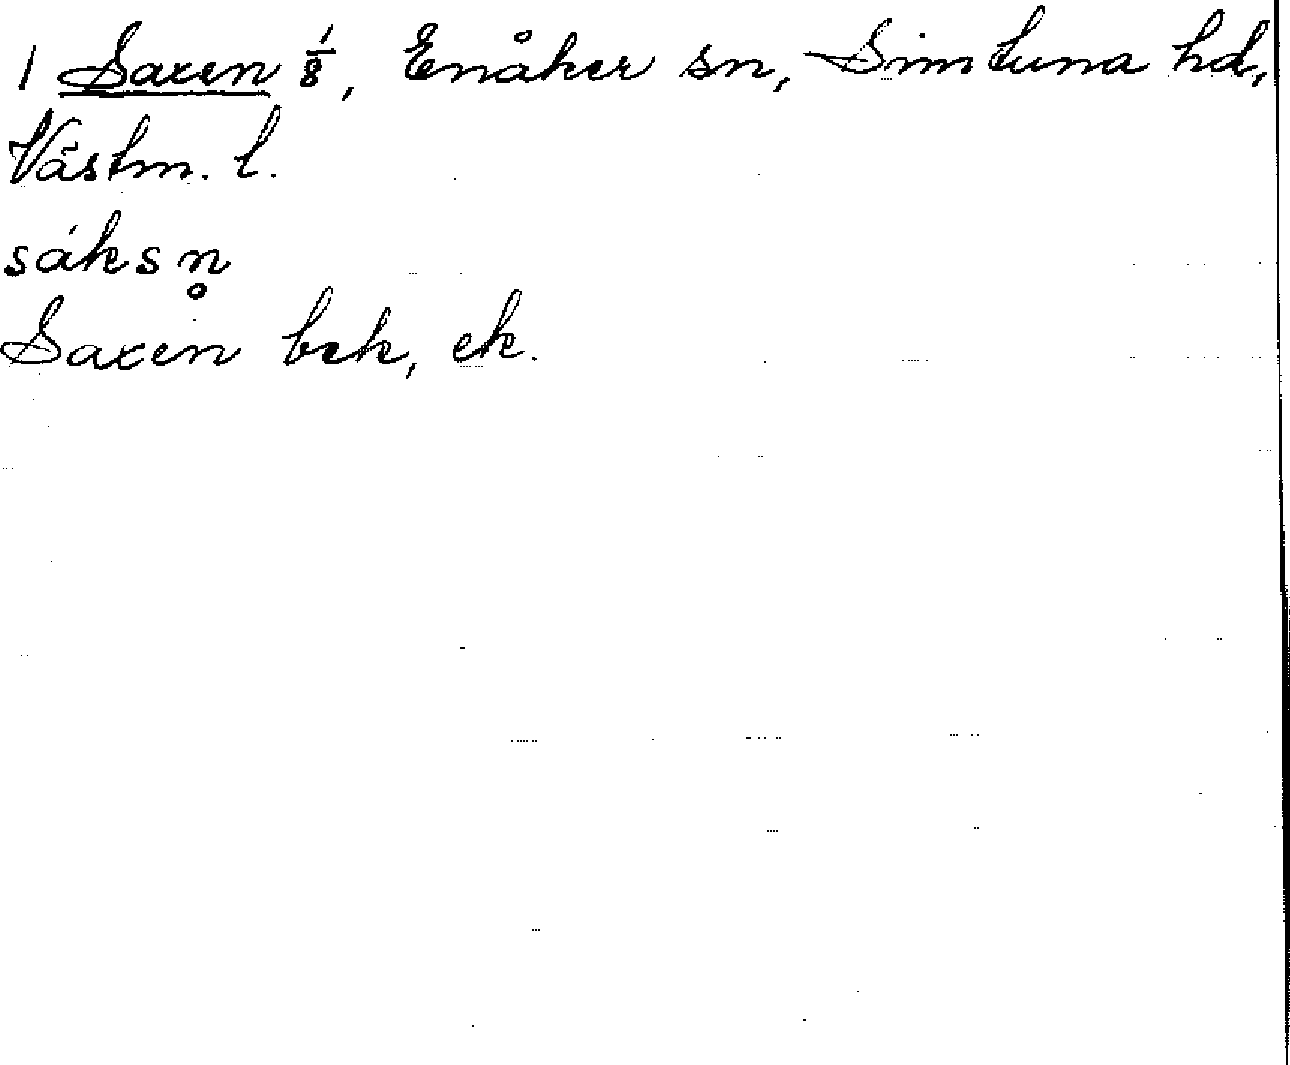 1 Saxen 1/8, Enåker sn, Simtuna hd,
Västm. l.
sáksn̥
Saxen bek, ek.